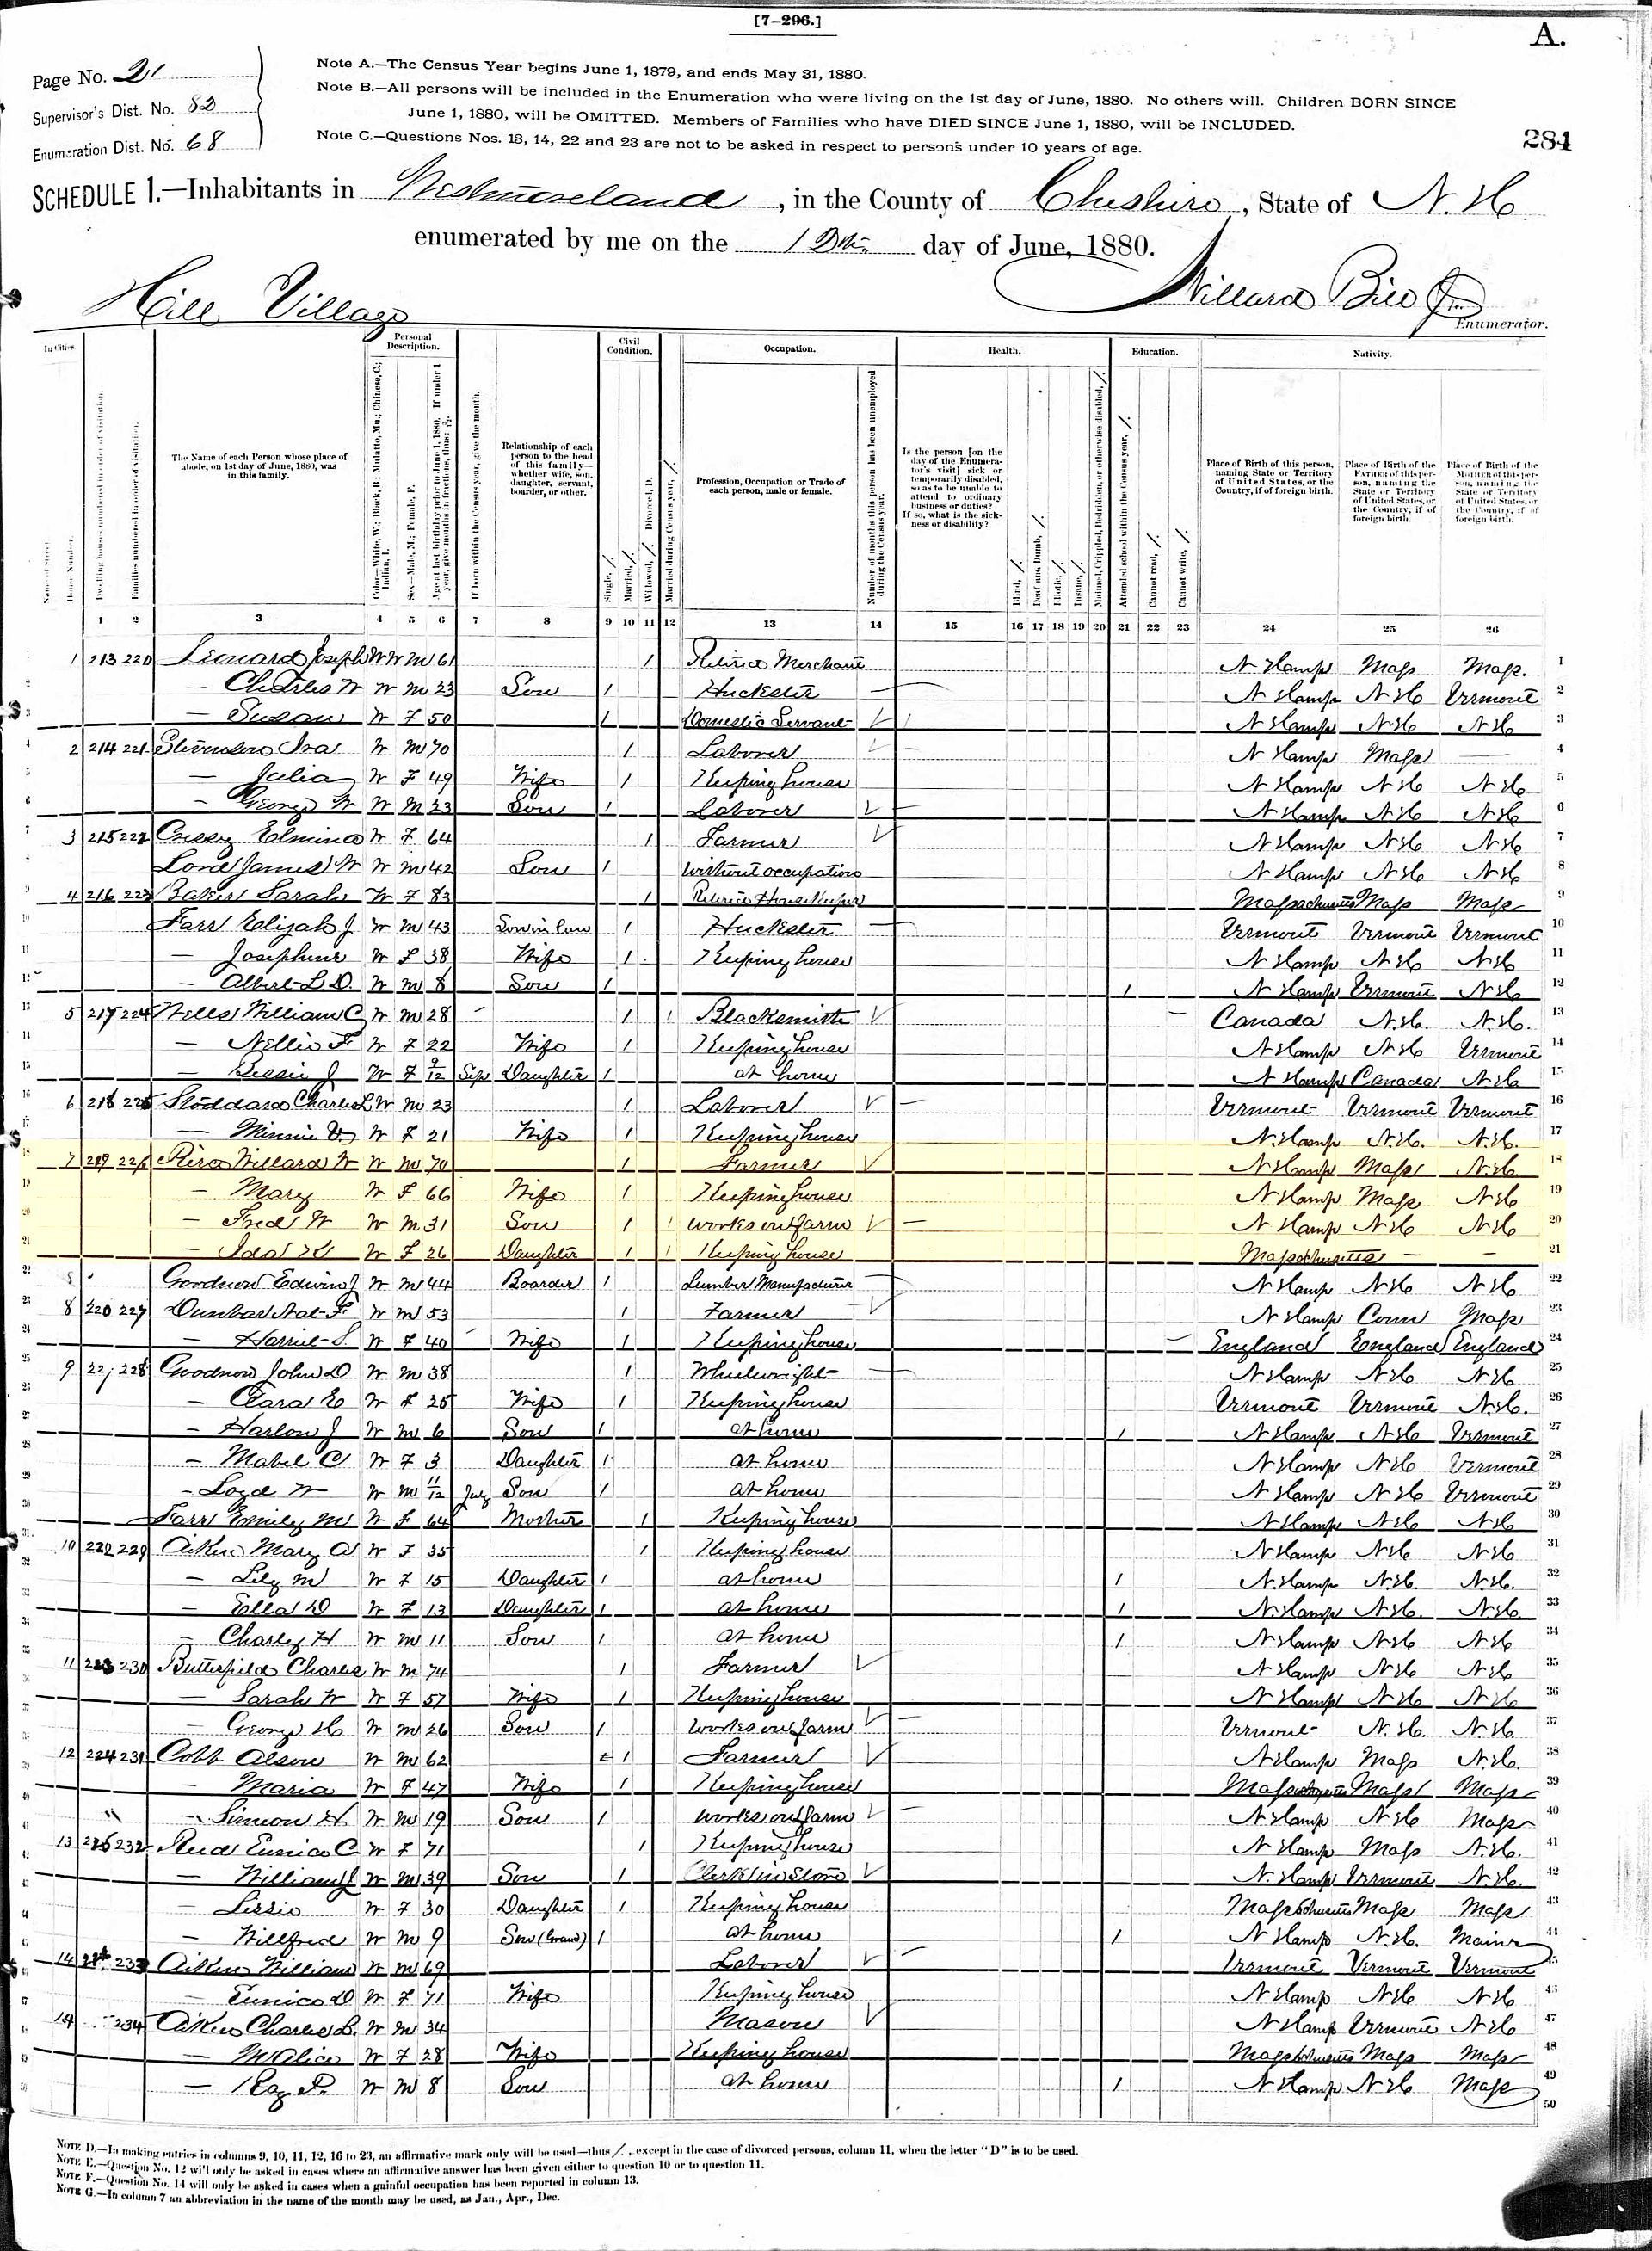 [7-296.]
A.
Page No. 21
Supervisor's Dist. No. 82
Enumeration Dist. No. 68
Note A.—The Census Year begins June 1, 1879, and ends May 31, 1880.
Note B.—All persons will be included in the Enumeration who were living on the 1st day of June, 1880. No others will. Children BORN SINCE
June 1, 1880, will be OMITTED. Members of Families who have DIED SINCE June 1, 1880, will be INCLUDED.
Note C.—Questions Nos. 13, 14, 22 and 23 are not to be asked in respect to persons under 10 years of age.
284
SCHEDULE 1.—Inhabitants in Westmoreland, in the County of Cheshire, State of N. H.
enumerated by me on the 12th day of June, 1880.
Hill Village
Willard Bill Jr.
Enumerator.
In Cities. Personal Description. Civil Condition. Occupation. Health. Education. Nativity.
Name of Street. House Number. Dwelling houses numbered in order of visitation. Families numbered in order of visitation.
The Name of each Person whose place of abode, on 1st day of June, 1880, was in this family.
Color—White, W.; Black, B.; Mulatto, Mu.; Chinese, C.; Indian, I.
Sex—Male, M.; Female, F.
Age at last birthday prior to June 1, 1880. If under 1 year, give months in fractions, thus: 3/12.
If born within the Census year, give the month.
Relationship of each person to the head of this family—whether wife, son, daughter, servant, boarder, or other.
Single, /. Married, /. Widowed, /. Divorced, D. Married during Census year, /.
Profession, Occupation or Trade of each person, male or female.
Number of months this person has been unemployed during the Census year.
Is the person [on the day of the Enumerator's visit] sick or temporarily disabled, so as to be unable to attend to ordinary business or duties? If so, what is the sickness or disability?
Blind, /. Deaf and Dumb, /. Idiotic, /. Insane, /. Maimed, Crippled, Bedridden, or otherwise disabled, /.
Attended school within the Census year, /. Cannot read, /. Cannot write, /.
Place of Birth of this person, naming State or Territory of United States, or the Country, if of foreign birth.
Place of Birth of the FATHER of this person, naming the State or Territory of United States, or the Country, if of foreign birth.
Place of Birth of the MOTHER of this person, naming the State or Territory of United States, or the Country, if of foreign birth.
1 2 3 4 5 6 7 8 9 10 11 12 13 14 15 16 17 18 19 20 21 22 23 24 25 26
1 1 213 220 Leonard Joseph W W M 61 / Retired Merchant N Hamp Mass Mass. 1
2 — Charles W W M 23 Son / Huckster — N Hamp N H Vermont 2
3 — Susan W F 50 / Domestic Servant N Hamp N H N H 3
4 2 214 221 Ira W M 70 / Laborer N Hamp Mass — 4
5 — Julia W F 49 Wife / Keeping house N Hamp N H N H 5
6 — George W W M 23 Son / Laborer — N Hamp N H N H 6
7 3 215 222 Elmina W F 64 / Farmer N Hamp N H N H 7
8 Lord James W W M 42 Son / Without occupation N Hamp N H N H 8
9 4 216 223 Baker Sarah W F 83 / Retired House Keeper Massachusetts Mass Mass 9
10 Farr Elijah J W M 43 Son in law / Huckster — Vermont Vermont Vermont 10
11 — Josephine W F 38 Wife / Keeping house N Hamp N H N H 11
12 — Albert L D. W M 8 Son / / N Hamp Vermont N H 12
13 5 217 224 Wells William C W M 28 – / / Blacksmith – Canada N.H. N.H. 13
14 — Nellie F W F 22 Wife / Keeping house N Hamp N H Vermont 14
15 — Bessie J W F 9/12 Sep Daughter / at home N Hamp Canada N H 15
16 6 218 225 Stoddard Charles L W M 23 / Laborer — Vermont Vermont Vermont 16
17 — Minnie W F 21 Wife / Keeping house N. Hamp N.H. N.H. 17
18 7 219 226 Willard W W M 70 / Farmer N Hamp Mass N.H. 18
19 — Mary W F 66 Wife / Keeping house N Hamp Mass N H 19
20 — Fred W W M 31 Son / / works on farm — N Hamp N H N H 20
21 — Ida W F 26 Daughter / / Keeping house Massachusetts — — 21
22 Goodnow Edwin J W M 44 Boarder / Lumber Manufacturer — N Hamp N H N H 22
23 8 220 227 Dunbar Nat F. W M 53 / Farmer N Hamp Conn Mass 23
24 — Harriet S. W F 40 – Wife / Keeping house – England England England 24
25 9 221 228 Goodnow John D W M 38 / Wheelwright — N Hamp N H N H 25
26 — Clara E W F 35 Wife / Keeping house Vermont Vermont N.H. 26
27 — Harlow J W M 6 Son / at home / N Hamp N H Vermont 27
28 — Mabel C W F 3 Daughter / at home N Hamp N H Vermont 28
29 — Loyd W W M 11/12 July Son / at home N Hamp N H Vermont 29
30 Farr Emily M W F 64 Mother / Keeping house N Hamp N H N H 30
31 10 222 229 Aiken Mary A W F 35 / Keeping house N Hamp N H N H 31
32 — Lily M W F 15 Daughter / at home / N. Hamp N.H. N.H. 32
33 — Ella D W F 13 Daughter / at home / N. Hamp N.H. N H 33
34 — Charley H W M 11 Son / at home / N Hamp N H N H 34
35 11 223 230 Butterfield Charles W M 74 / Farmer N Hamp N H N H 35
36 — Sarah W W F 57 Wife / Keeping house N Hamp N H N H 36
37 — George H W M 26 Son / works on farm — Vermont N.H. N.H. 37
38 12 224 231 Cobb Alson W M 62 / Farmer N Hamp Mass N.H. 38
39 — Maria W F 47 Wife / Keeping house Massachusetts Mass Mass 39
40 " — Simeon H W M 19 Son / works on farm — N Hamp N H Mass 40
41 13 225 232 Eunice C W F 71 / Keeping house N Hamp Mass N.H. 41
42 — William J W M 39 Son / Clerk in Store N. Hamp Vermont N.H. 42
43 — Lizzie W F 30 Daughter / Keeping house Massachusetts Mass Mass 43
44 — Willfred W M 9 Son (Grand) / at home / N Hamp N.H. Maine 44
45 14 233 Aiken William W M 69 Laborer — Vermont Vermont Vermont 45
— Eunice D W F 71 Wife Keeping house N Hamp N H N H 46
14 234 Aiken Charles L. W M 34 Mason N Hamp Vermont N H 47
— M Alice W F 28 Wife Keeping house Massachusetts Mass Mass 48
— Ray P. W M 8 Son at home / N Hamp N H Mass 49
50
NOTE D.—In making entries in columns 9, 10, 11, 12, 16 to 23, an affirmative mark only will be used—thus /, except in the case of divorced persons, column 11, when the letter "D" is to be used.
NOTE E.—Question No. 12 will only be asked in cases where an affirmative answer has been given either to question 10 or to question 11.
NOTE F.—Question No. 14 will only be asked in cases when a gainful occupation has been reported in column 13.
NOTE G.—In column 7 an abbreviation in the name of the month may be used, as Jan., Apr., Dec.